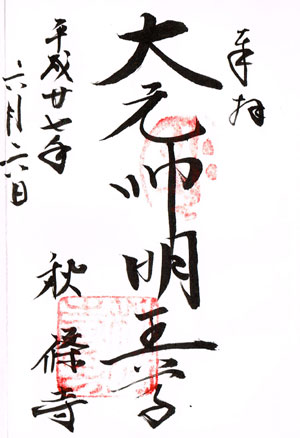 奉拝
大元帥明王
秋篠寺
平成廿七年
六月六日